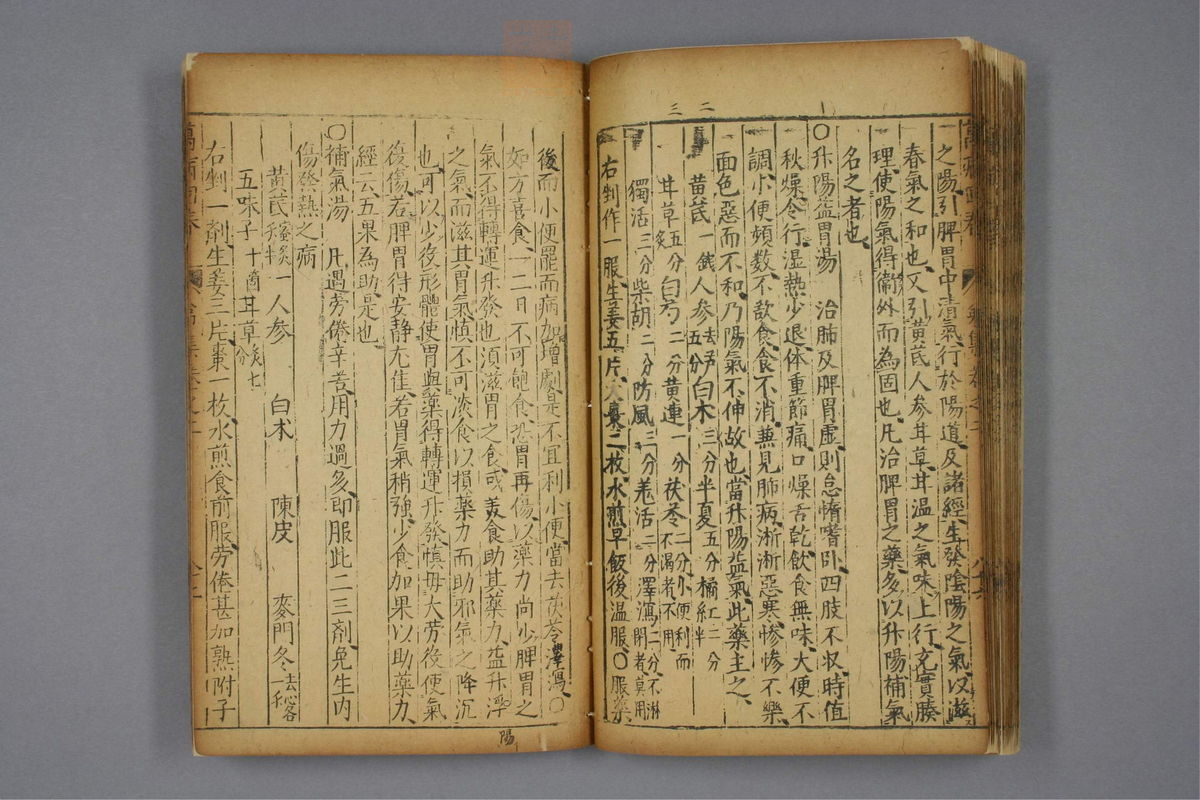 之陽引脾胃中清氣行於陽道及諸經生發陰陽之氣以滋
春氣之和也又引黃芪人參甘草甘溫之氣味上行充實腠
理使陽氣得衛外而為固也凡治脾胃之藥多以升陽補氣
名之者也
〇升陽益胃湯 治肺及脾胃虛則怠惰嗜卧四肢不収時值
秋燥令行湿熱少退体重節痛口燥舌乾飲食無味大便不
調小便頻數不欲食食不消兼見肺病淅淅惡寒慘慘不樂
面色惡而不和乃陽氣不伸故也當升陽益氣此藥主之
黃芪一錢人參去芦五分白术三分半夏五分橘紅二分半
甘草炙五分白芍二分黃連一分茯苓二分小便利而不渴者不用
獨活三分柴胡二分防風三分羗活二分澤瀉二分不淋閉者莫用
右剉作一服生姜五片大棗二枚水煎早飯後温服〇服藥
後而小便罷而病加增劇是不宜利小便當去茯苓澤瀉〇
如方喜食一二日不可飽食恐胃再傷以藥力尚少脾胃之
氣不得轉運升發也須滋胃之食或美食助其藥力益升浮
之氣而滋其胃氣慎不可淡食以損藥力而助邪氣之降沉
也可以少役形體使胃與藥得轉運升發慎毋大勞役使氣
復傷若脾胃得安静尤佳若胃氣稍強少食加果以助藥力
經云五果為助是也
〇補氣湯 凡遇劳倦辛苦用力過多即服此二三剤免生内
傷發熱之病
黃芪蜜炙一 人參 白术 陳皮 麥門冬去心各一
五味子十箇甘草炙七分
右剉一劑生姜三片棗一枚水煎食前服劳倦甚加熟附子
陽